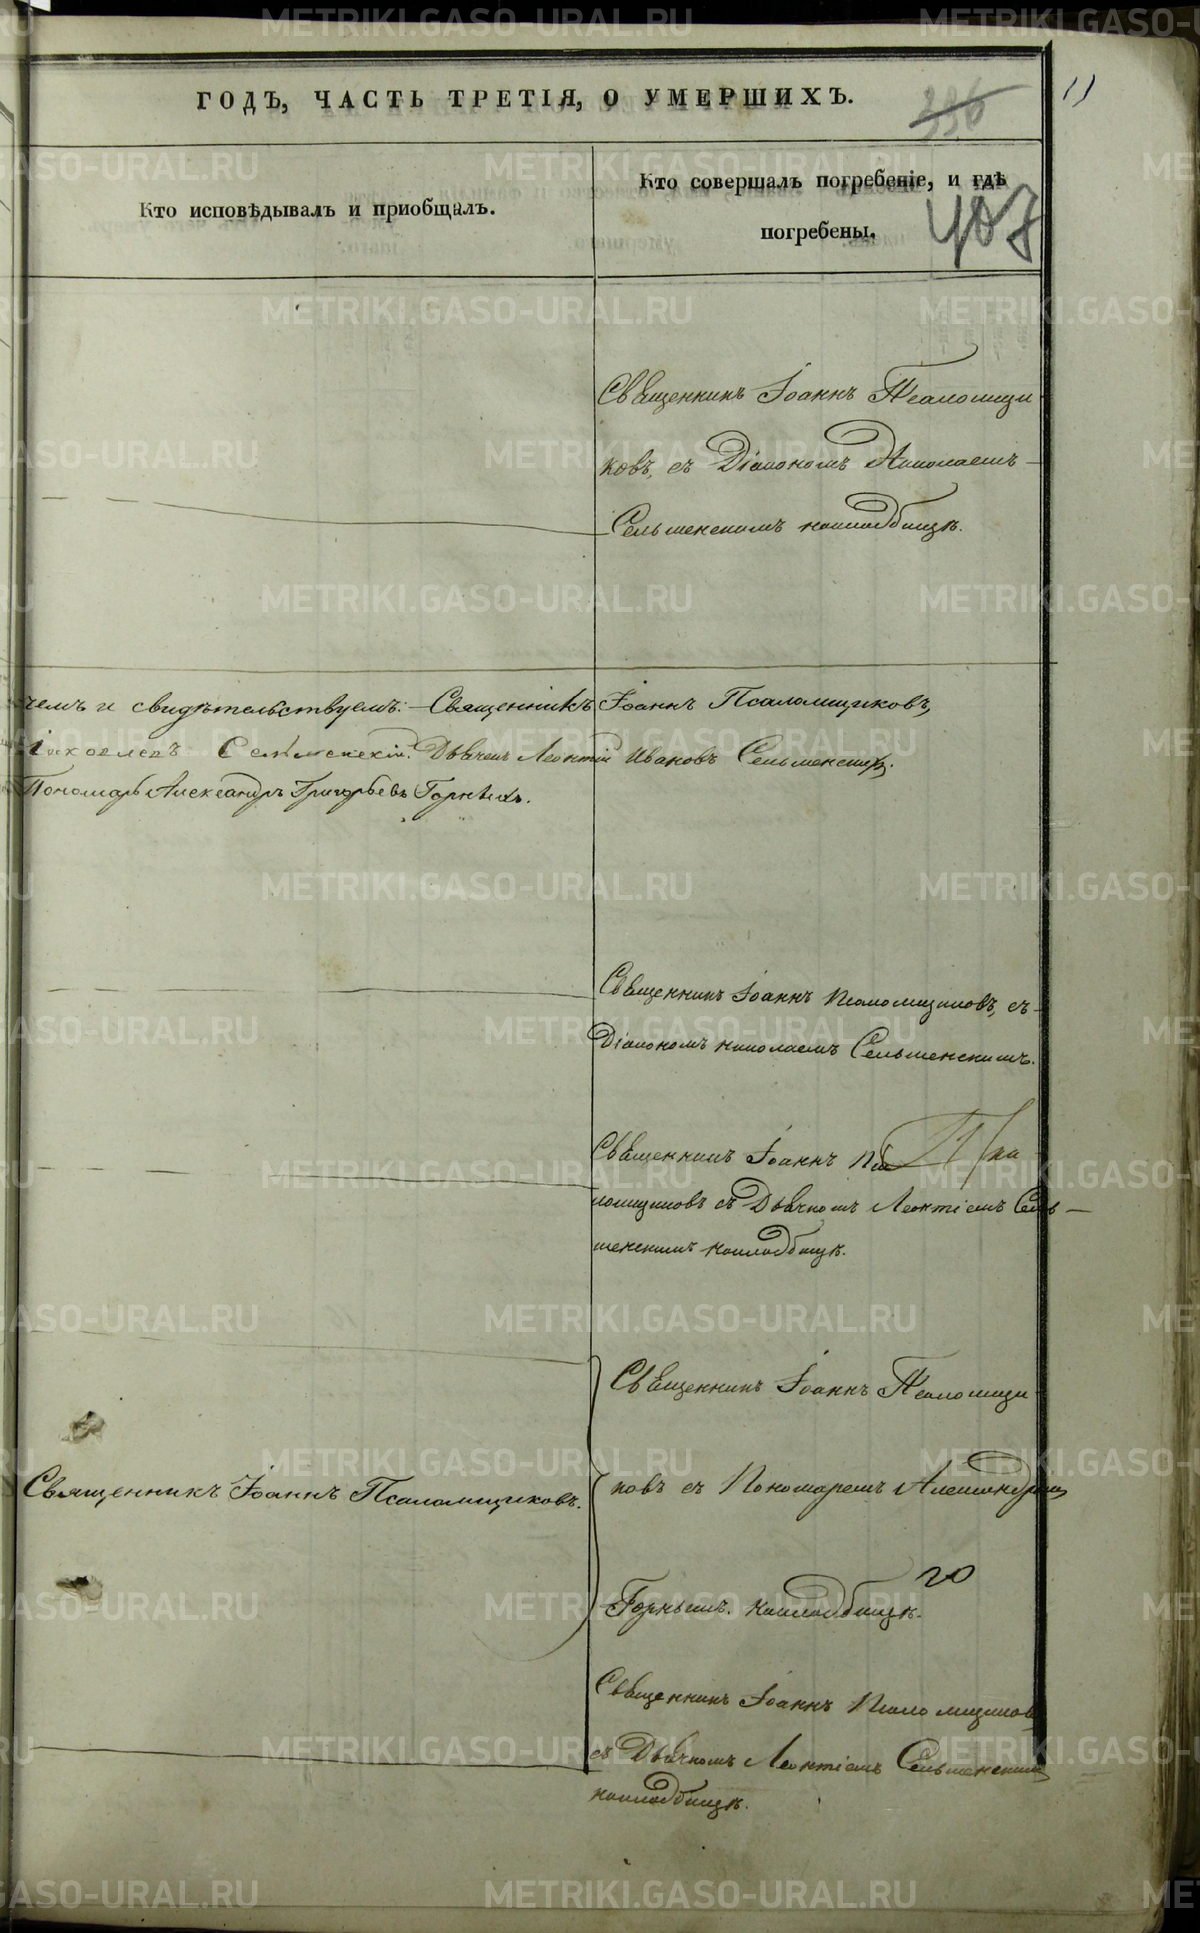 ГОДЪ, ЧАСТЬ ТРЕТІЯ, О УМЕРШИХЪ.
336
11
Кто исповѣдывалъ и пріобщалъ.
Кто совершалъ погребеніе, и гдѣ
погребены.
407
Священникъ Іоаннъ Псаломщи
ковъ, съ Діакономъ Николаемъ
Сельменскимъ накладбищѣ.
чемъ и свидѣтельствуемъ: Священникъ Іоаннъ Псаломщиковъ,
Дьячекъ Леонтій Ивановъ Сельменскій.
Пономарь Александръ Григорьевъ Горныхъ.
Священникъ Іоаннъ Псаломщиковъ, съ
Діакономъ Николаемъ Сельменскимъ.
Священникъ Іоаннъ Пса
ломщиковъ съ Дьячкомъ Леонтіемъ Сель
менскимъ накладбищѣ.
Священникъ Іоаннъ Псаломщи
Священникъ Іоаннъ Псаломщиковъ.
ковъ съ Пономаремъ Александромъ
Горнымъ. накладбищѣ.
Священникъ Іоаннъ Псаломщиковъ
съ Дьячкомъ Леонтіемъ Сельменскимъ
накладбищѣ.
METRIKI.GASO-URAL.RU